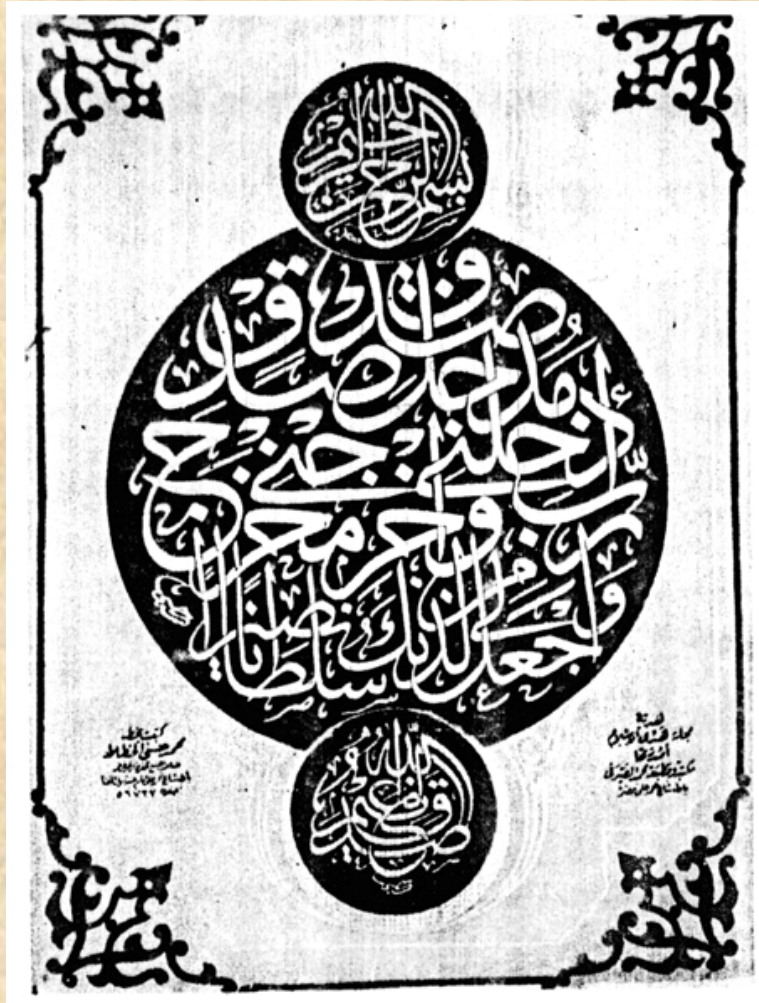 بسم الله الرحمن الرحيم
رب أدخلني مدخل صدق
وأخرجني مخرج صدق
واجعل لي من لدنك سلطانا نصيرا
صدق الله العظيم
كتبه
محمد حسني الخطاط
هدية
مجلة